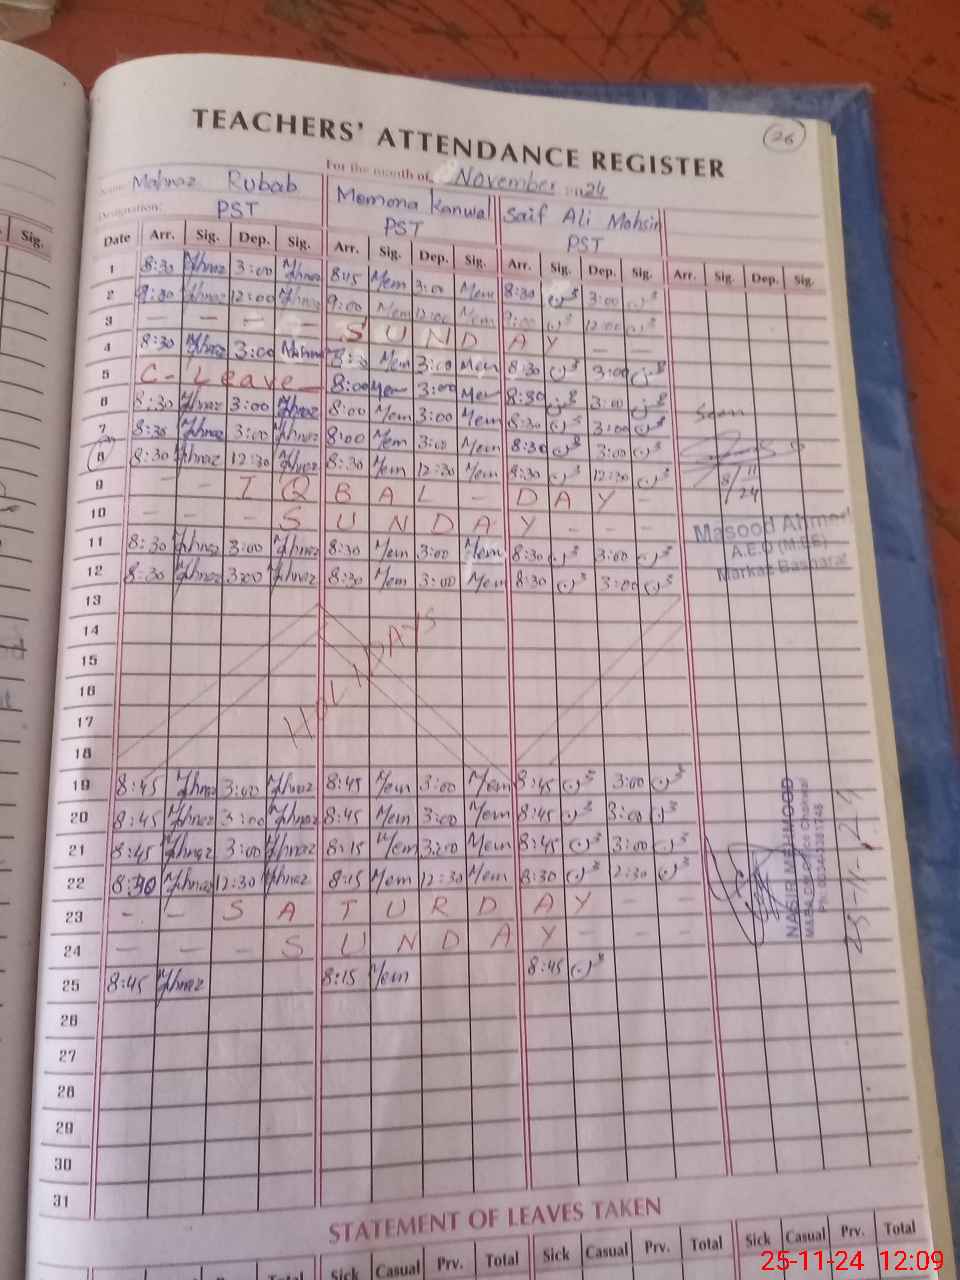 26
TEACHERS' ATTENDANCE REGISTER
For the month of November 24
Mahnaz Rubab Momona Kanwal Saif Ali Mohsin
Designation: PST PST PST
Sig. Date Arr. Sig. Dep. Sig. Arr. Sig. Dep. Sig. Arr. Sig. Dep. Sig. Arr. Sig. Dep. Sig.
1 8:30 3:00 8:15 Mem 3:00 Mem 8:30 3:00
2 12:00 9:00 Mem 12:00 Mem 9:00 12:00
3 - - - - S U N D A Y - -
4 8:30 3:00 8:30 Mem 3:00 Mem 8:30 3:00
5 C - Leave 8:00 Mem 3:00 Mem 8:30 3:00
6 8:30 3:00 8:00 Mem 3:00 Mem 8:30 3:00 Seen
7 8:30 3:00 8:00 Mem 3:00 Mem 8:30 3:00
8 8:30 12:30 8:30 Mem 12:30 Mem 8:30 12:30
9 - - I Q B A L - D A Y - 8/11/24
10 - - - S U N D A Y - - -
11 8:30 3:00 8:30 Mem 3:00 Mem 8:30 3:00 Masood Ahmed
A.E.O (M.EE)
12 8:30 3:00 8:30 Mem 3:00 Mem 8:30 3:00 Markaz Basharat
13
14
15 HOLIDAYS
16
17
18
19 8:45 3:00 8:45 Mem 3:00 Mem 8:45 3:00
20 8:45 3:00 8:45 Mem 3:00 Mem 8:45 3:00
21 8:45 3:00 8:15 Mem 3:00 Mem 8:45 3:00
22 8:30 12:30 8:15 Mem 12:30 Mem 8:30 12:30
23 - - S A T U R D A Y - -
24 - - - S U N D A Y - - -
25 8:45 8:15 Mem 8:45
NASIR MEHMOOD
25-11-24
26
27
28
29
30
31
STATEMENT OF LEAVES TAKEN
Total Sick Casual Prv. Total Sick Casual Prv. Total Sick Casual Prv. Total
25-11-24 12:09